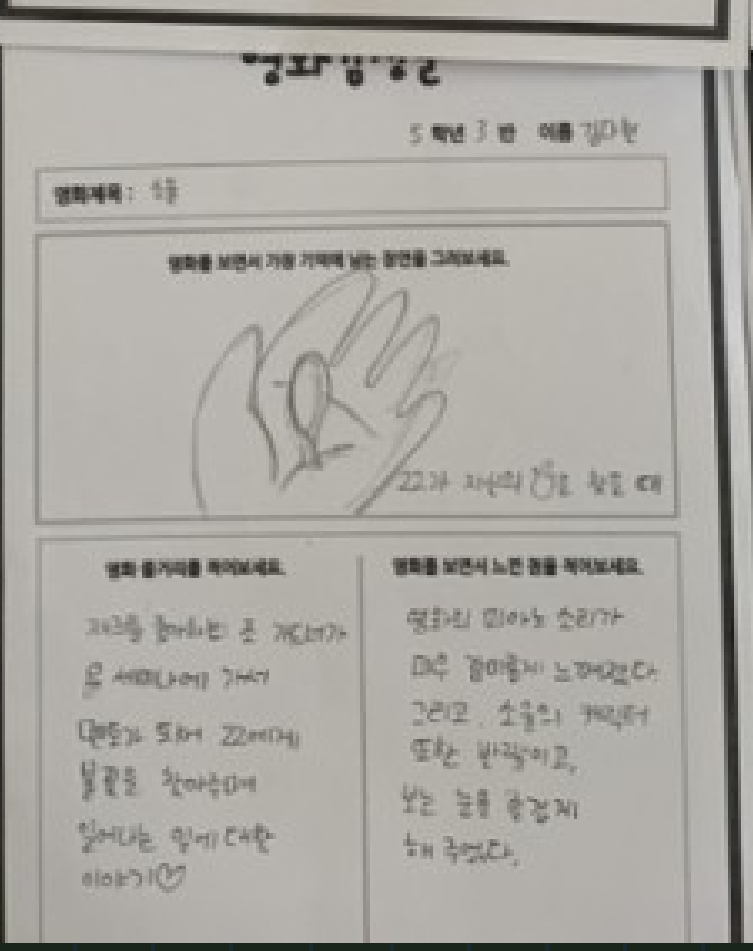 영화감상문
5 학년 3 반 이름 김다현
영화제목: 소울
영화를 보면서 가장 기억에 남는 장면을 그려보세요.
22가 자신의 꿈을 찾을 때
영화 줄거리를 적어보세요.
재즈를 좋아하는 조 가드너가
유 세미나에 가서
멘토가 되어 22에게
불꽃을 찾아주며
일어나는 일에 대한
이야기♡
영화를 보면서 느낀 점을 적어보세요.
영화의 피아노 소리가
매우 흥미롭게 느껴졌다
그리고, 소울의 캐릭터
또한 반짝이고,
보는 눈을 즐겁게
해 주었다.